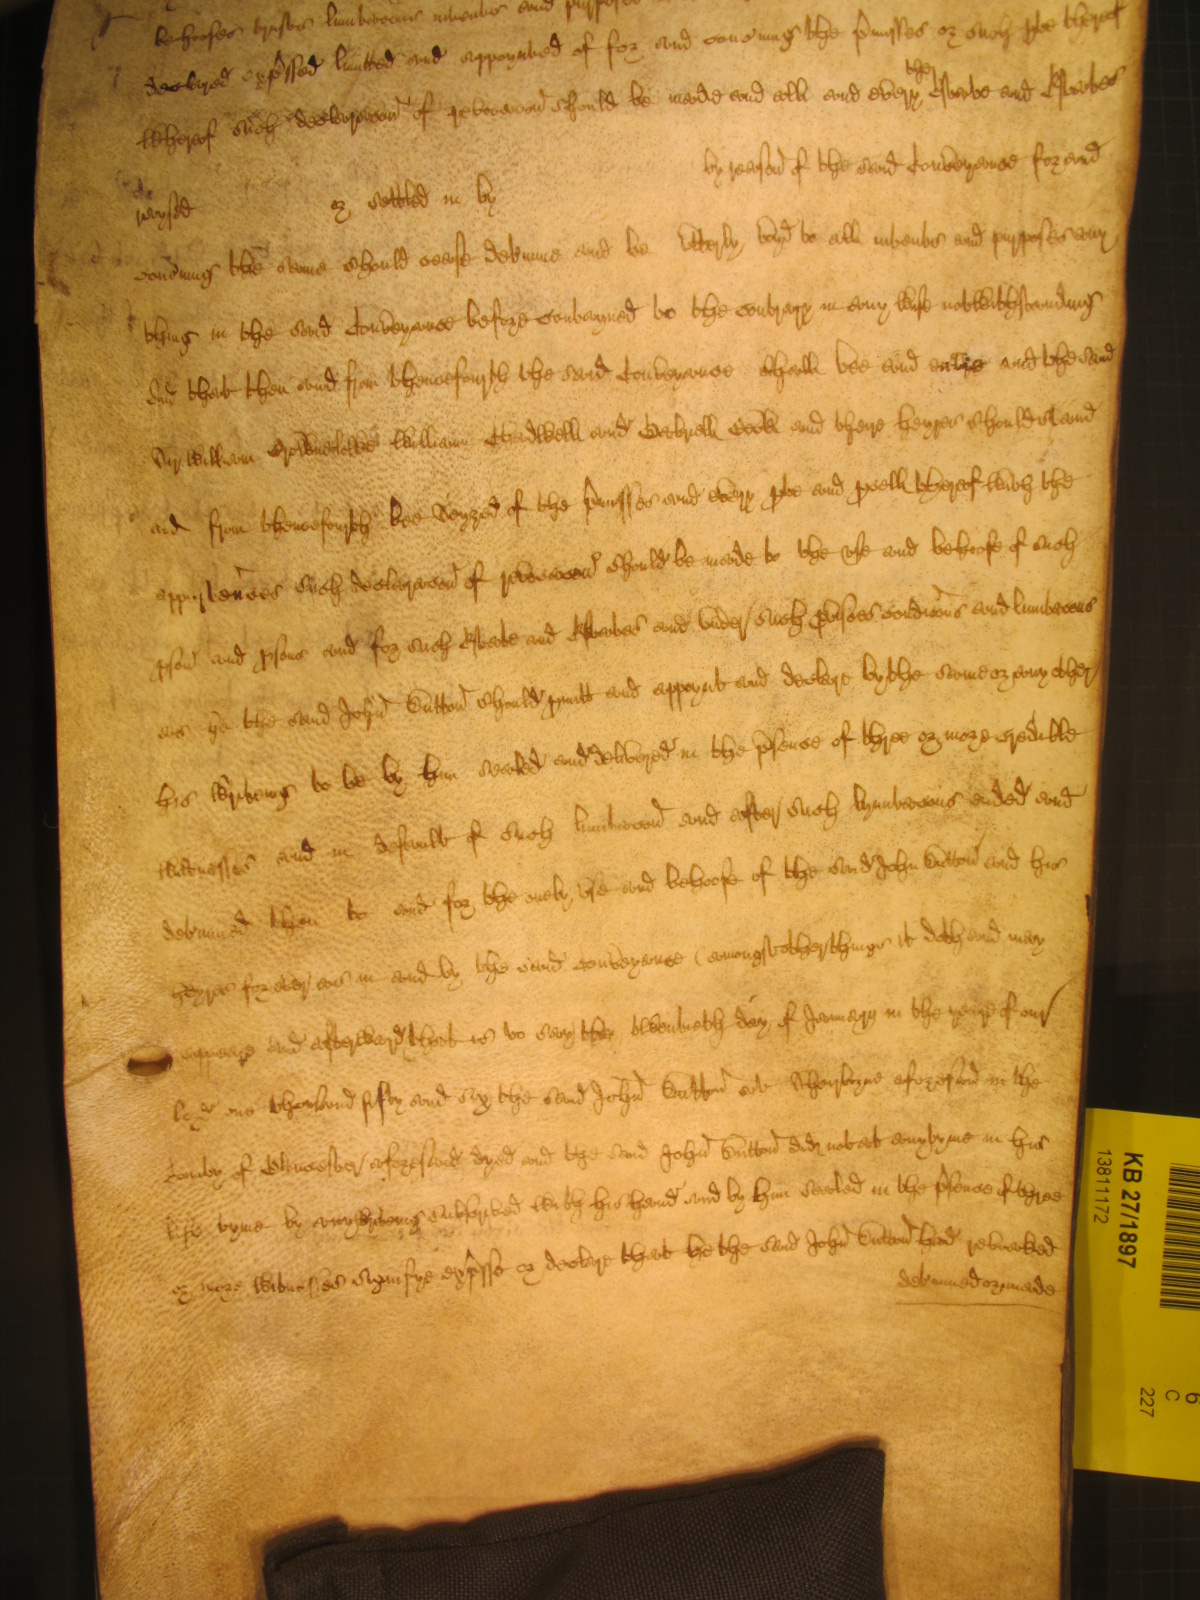 behoofes trustes limitacons intents and purposes
declared expssed limitted and appoynted of for and concning the pmisses or such pte thereof
whereof such declaracon of revocacon should be made and all and every the Estate and Estates
raysed or settled in by by reason of the said Conveyance for and
concning the same should cease detmine and be utterly voyd to all intents and purposes any
thing in the said Conveyance before conteyned to the contrary in any wise notwithstanding
And that then and from thenceforth the said Conveyance shall bee and and the said
Sir William William Chadwell and and theire heyres should stand
and from thenceforth bee seyzed of the pmisses and every pte and pcell thereof with the
appurtenñces such declaracon of revocacon should be made to the use and behoofe of such
pson and psons and for such Estate and Estates and under such pvisoes condicons and limitacons
as he the said John Sutton should lymitt and appoynt and declare by the same or any other
his wryteing to be by him sealed and delivered in the psence of three or more credible
wittnesses and in default of such limitacon and after such lymitacons ended and
detmined then to and for the only use and behoofe of the said John Sutton and his
heyres for ever as in and by the said Conveyance (amongst other things it doth and may
appeare And afterward that is to say the twentieth day of January in the yeare of our
Lord one thousand fifty and six the said John Sutton att Sherborne aforesaid in the
County of Gloucester aforesaid dyed and the said John Sutton did not at any tyme in his
life tyme by any wryteing subscribed with his hand and by him sealed in the psence of three
or more witnesses signifye expsse or declare that he the said John Sutton had revoaked
detmined or made
KB 27/1897
13811172
6
C
227